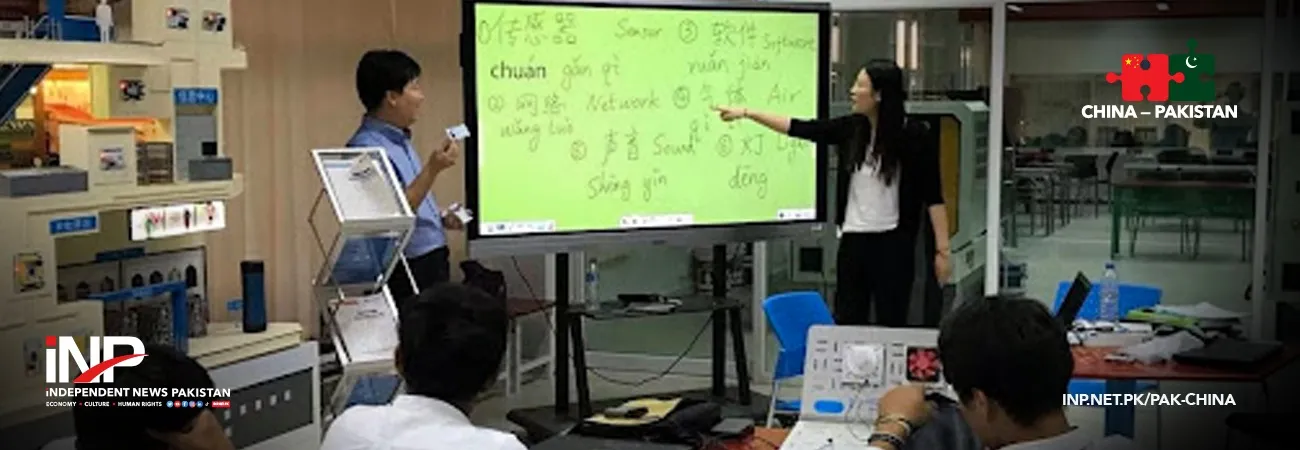 ①传感器 Sensor ③ 软件 Software
chuán gǎn qì ruǎn jiàn
② 网络 Network ④ 气体 Air
wǎng luò qì
⑤ 声音 Sound ⑥ 灯
shēng yīn dēng
CHINA – PAKISTAN
iNP
iNDEPENDENT NEWS PAKISTAN
ECONOMY • CULTURE • HUMAN RIGHTS
INP.NET.PK/PAK-CHINA